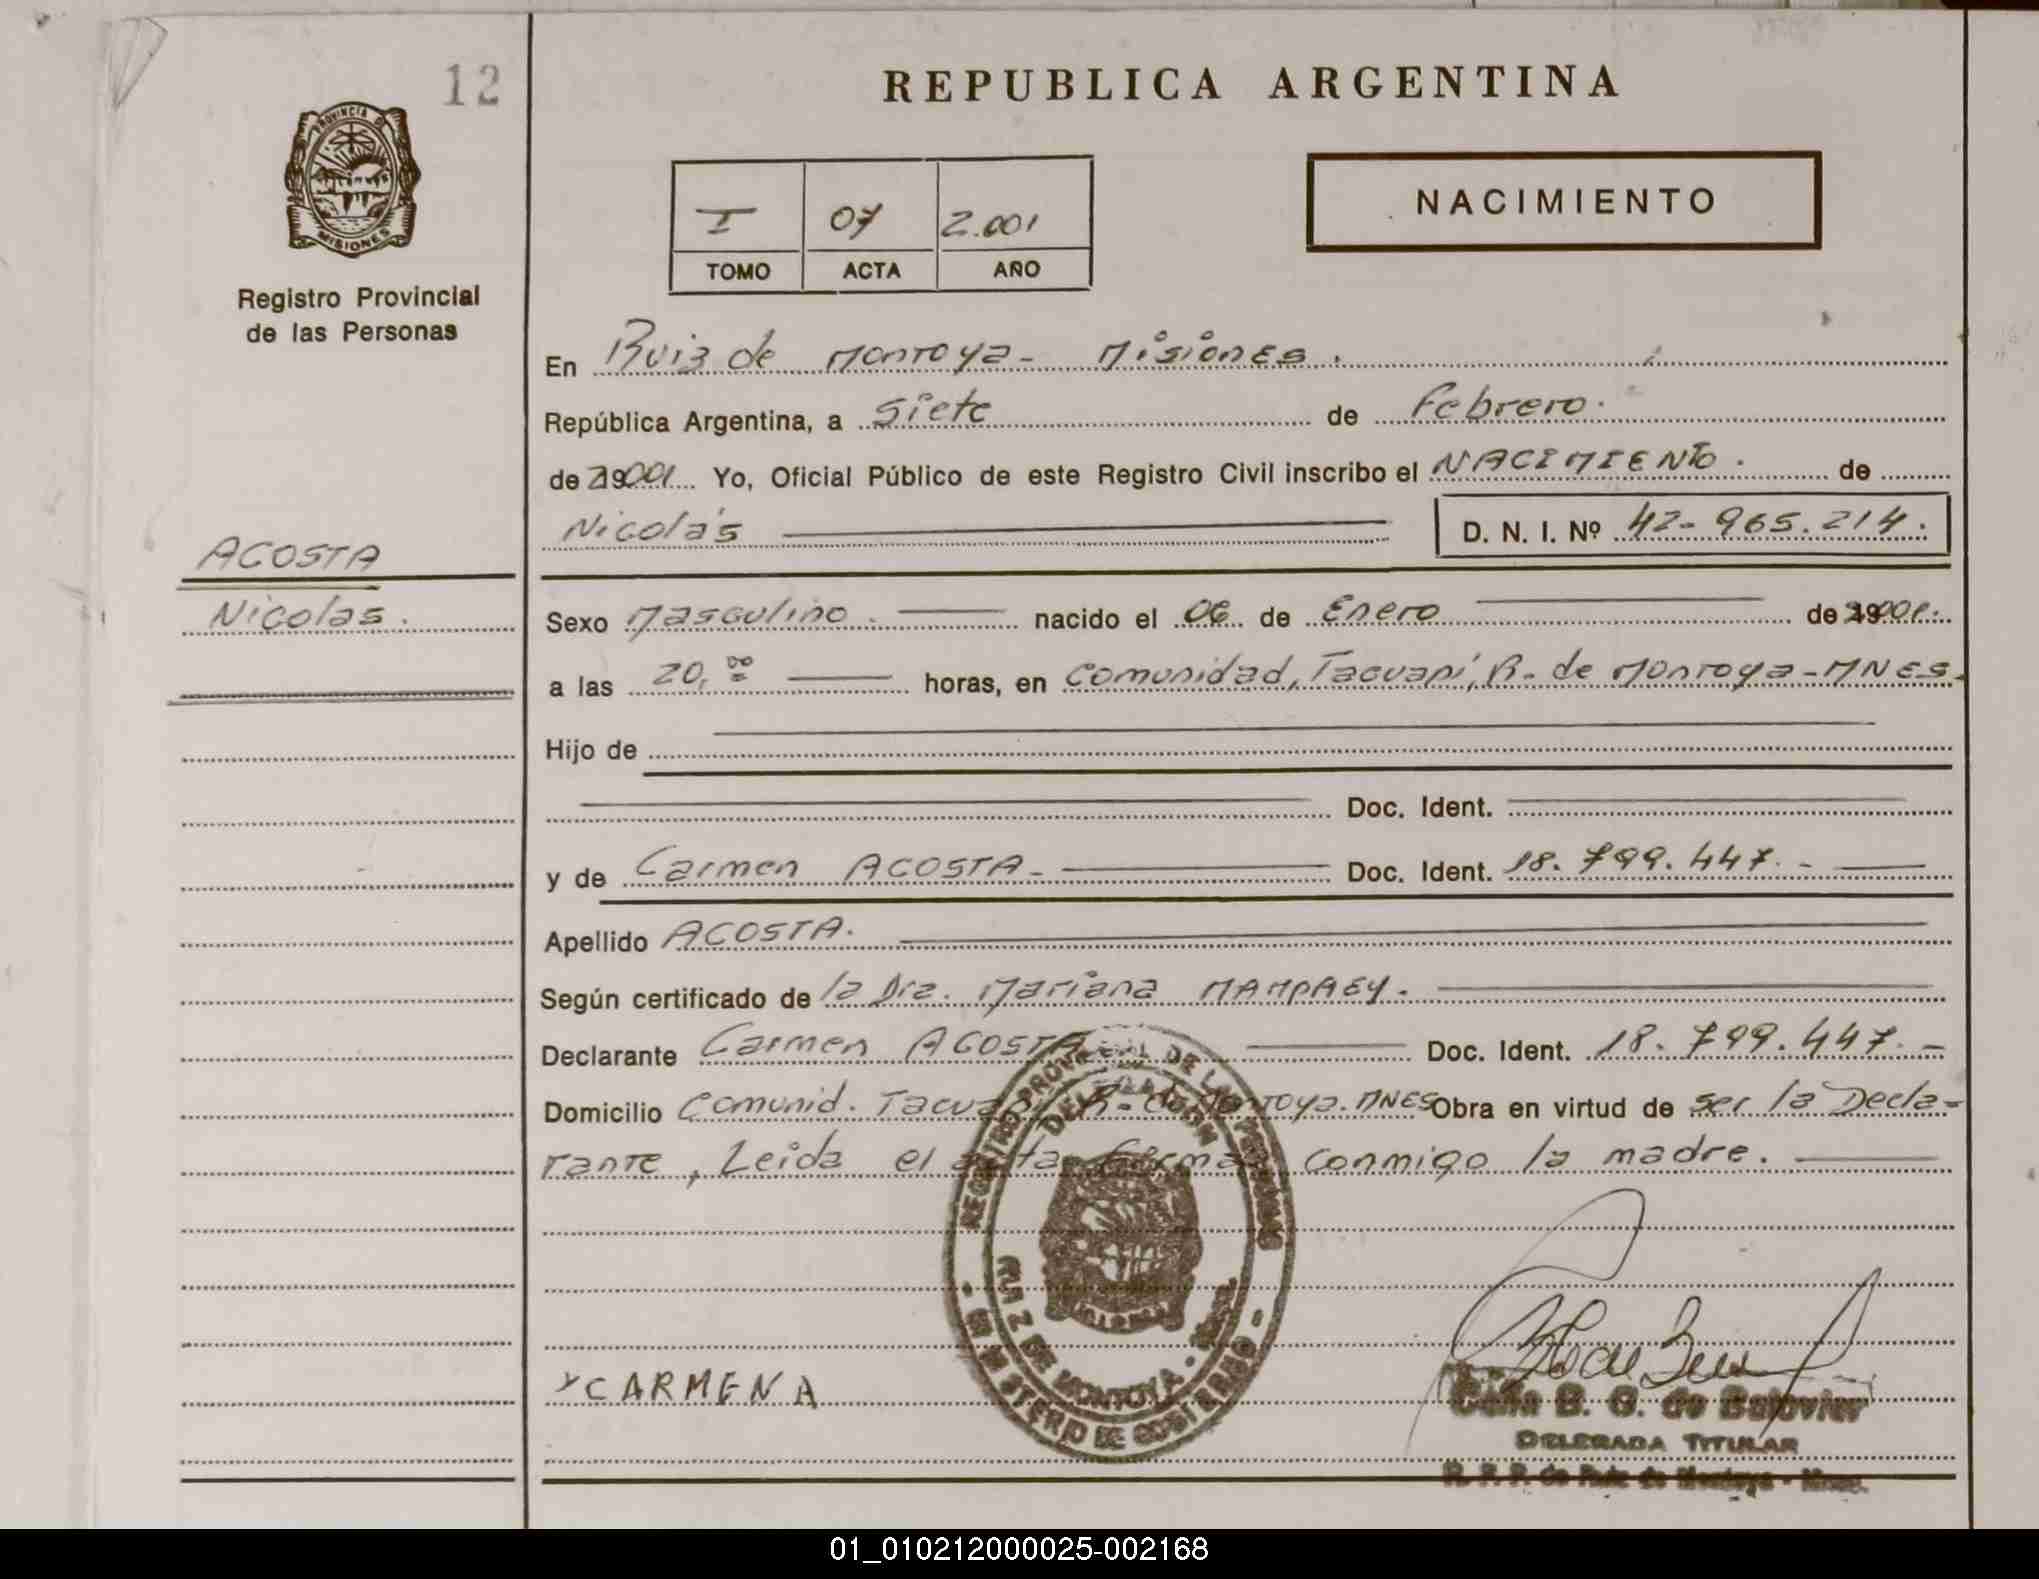 12
REPUBLICA ARGENTINA
PROVINCIA DE
MISIONES
Registro Provincial
de las Personas
NACIMIENTO
I 07 2.001
TOMO ACTA AÑO
En Ruiz de Montoya - Misiones.
República Argentina, a Siete de Febrero.
de 2001 Yo, Oficial Público de este Registro Civil inscribo el NACIMIENTO. de
Nicolás D. N. I. Nº 42-965.214.
ACOSTA
Nicolas.
Sexo Masculino. nacido el 06 de Enero de 2001.
a las 20,00 horas, en Comunidad, Tacuapí, R. de Montoya - MNES.
Hijo de
Doc. Ident.
y de Carmen ACOSTA - Doc. Ident. 18.799.447. -
Apellido ACOSTA.
Según certificado de la Dra. Mariana MAMPAEY.
Declarante Carmen ACOSTA Doc. Ident. 18.799.447. -
Domicilio Comunid. Tacuapí R. de Montoya. MNES Obra en virtud de ser la Decla-
rante, Leida el acta firma conmigo la madre.
REGISTRO PROVINCIAL DE LAS PERSONAS
DELEGACION
RUIZ DE MONTOYA -
- MINISTERIO DE GOBIERNO -
x CARMEN A
B. G. de
DELEGADA TITULAR
R. P. P. de Ruiz de Montoya - Mnes.
01_010212000025-002168